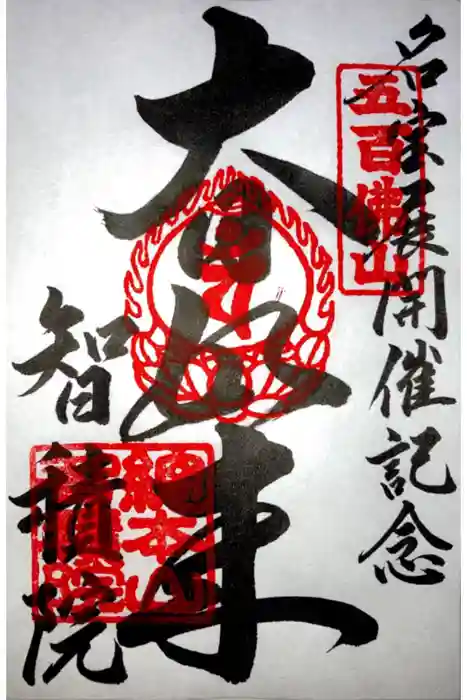 名宝展開催記念
五百佛山
大日如来
智積院
總本山智積院